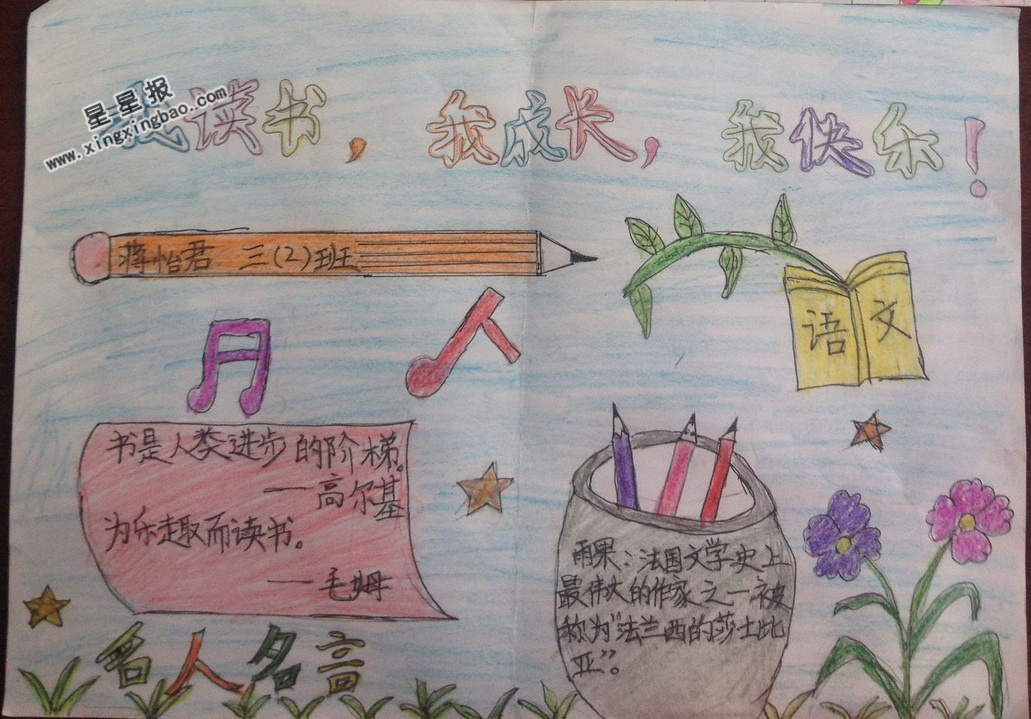 星星报
www.xingxingbao.com
我读书，我成长，我快乐！
蒋怡君 三(2)班
语文
书是人类进步的阶梯。
——高尔基
为乐趣而读书。
——毛姆
雨果：法国文学史上
最伟大的作家之一被
称为“法兰西的莎士比
亚”。
名人名言